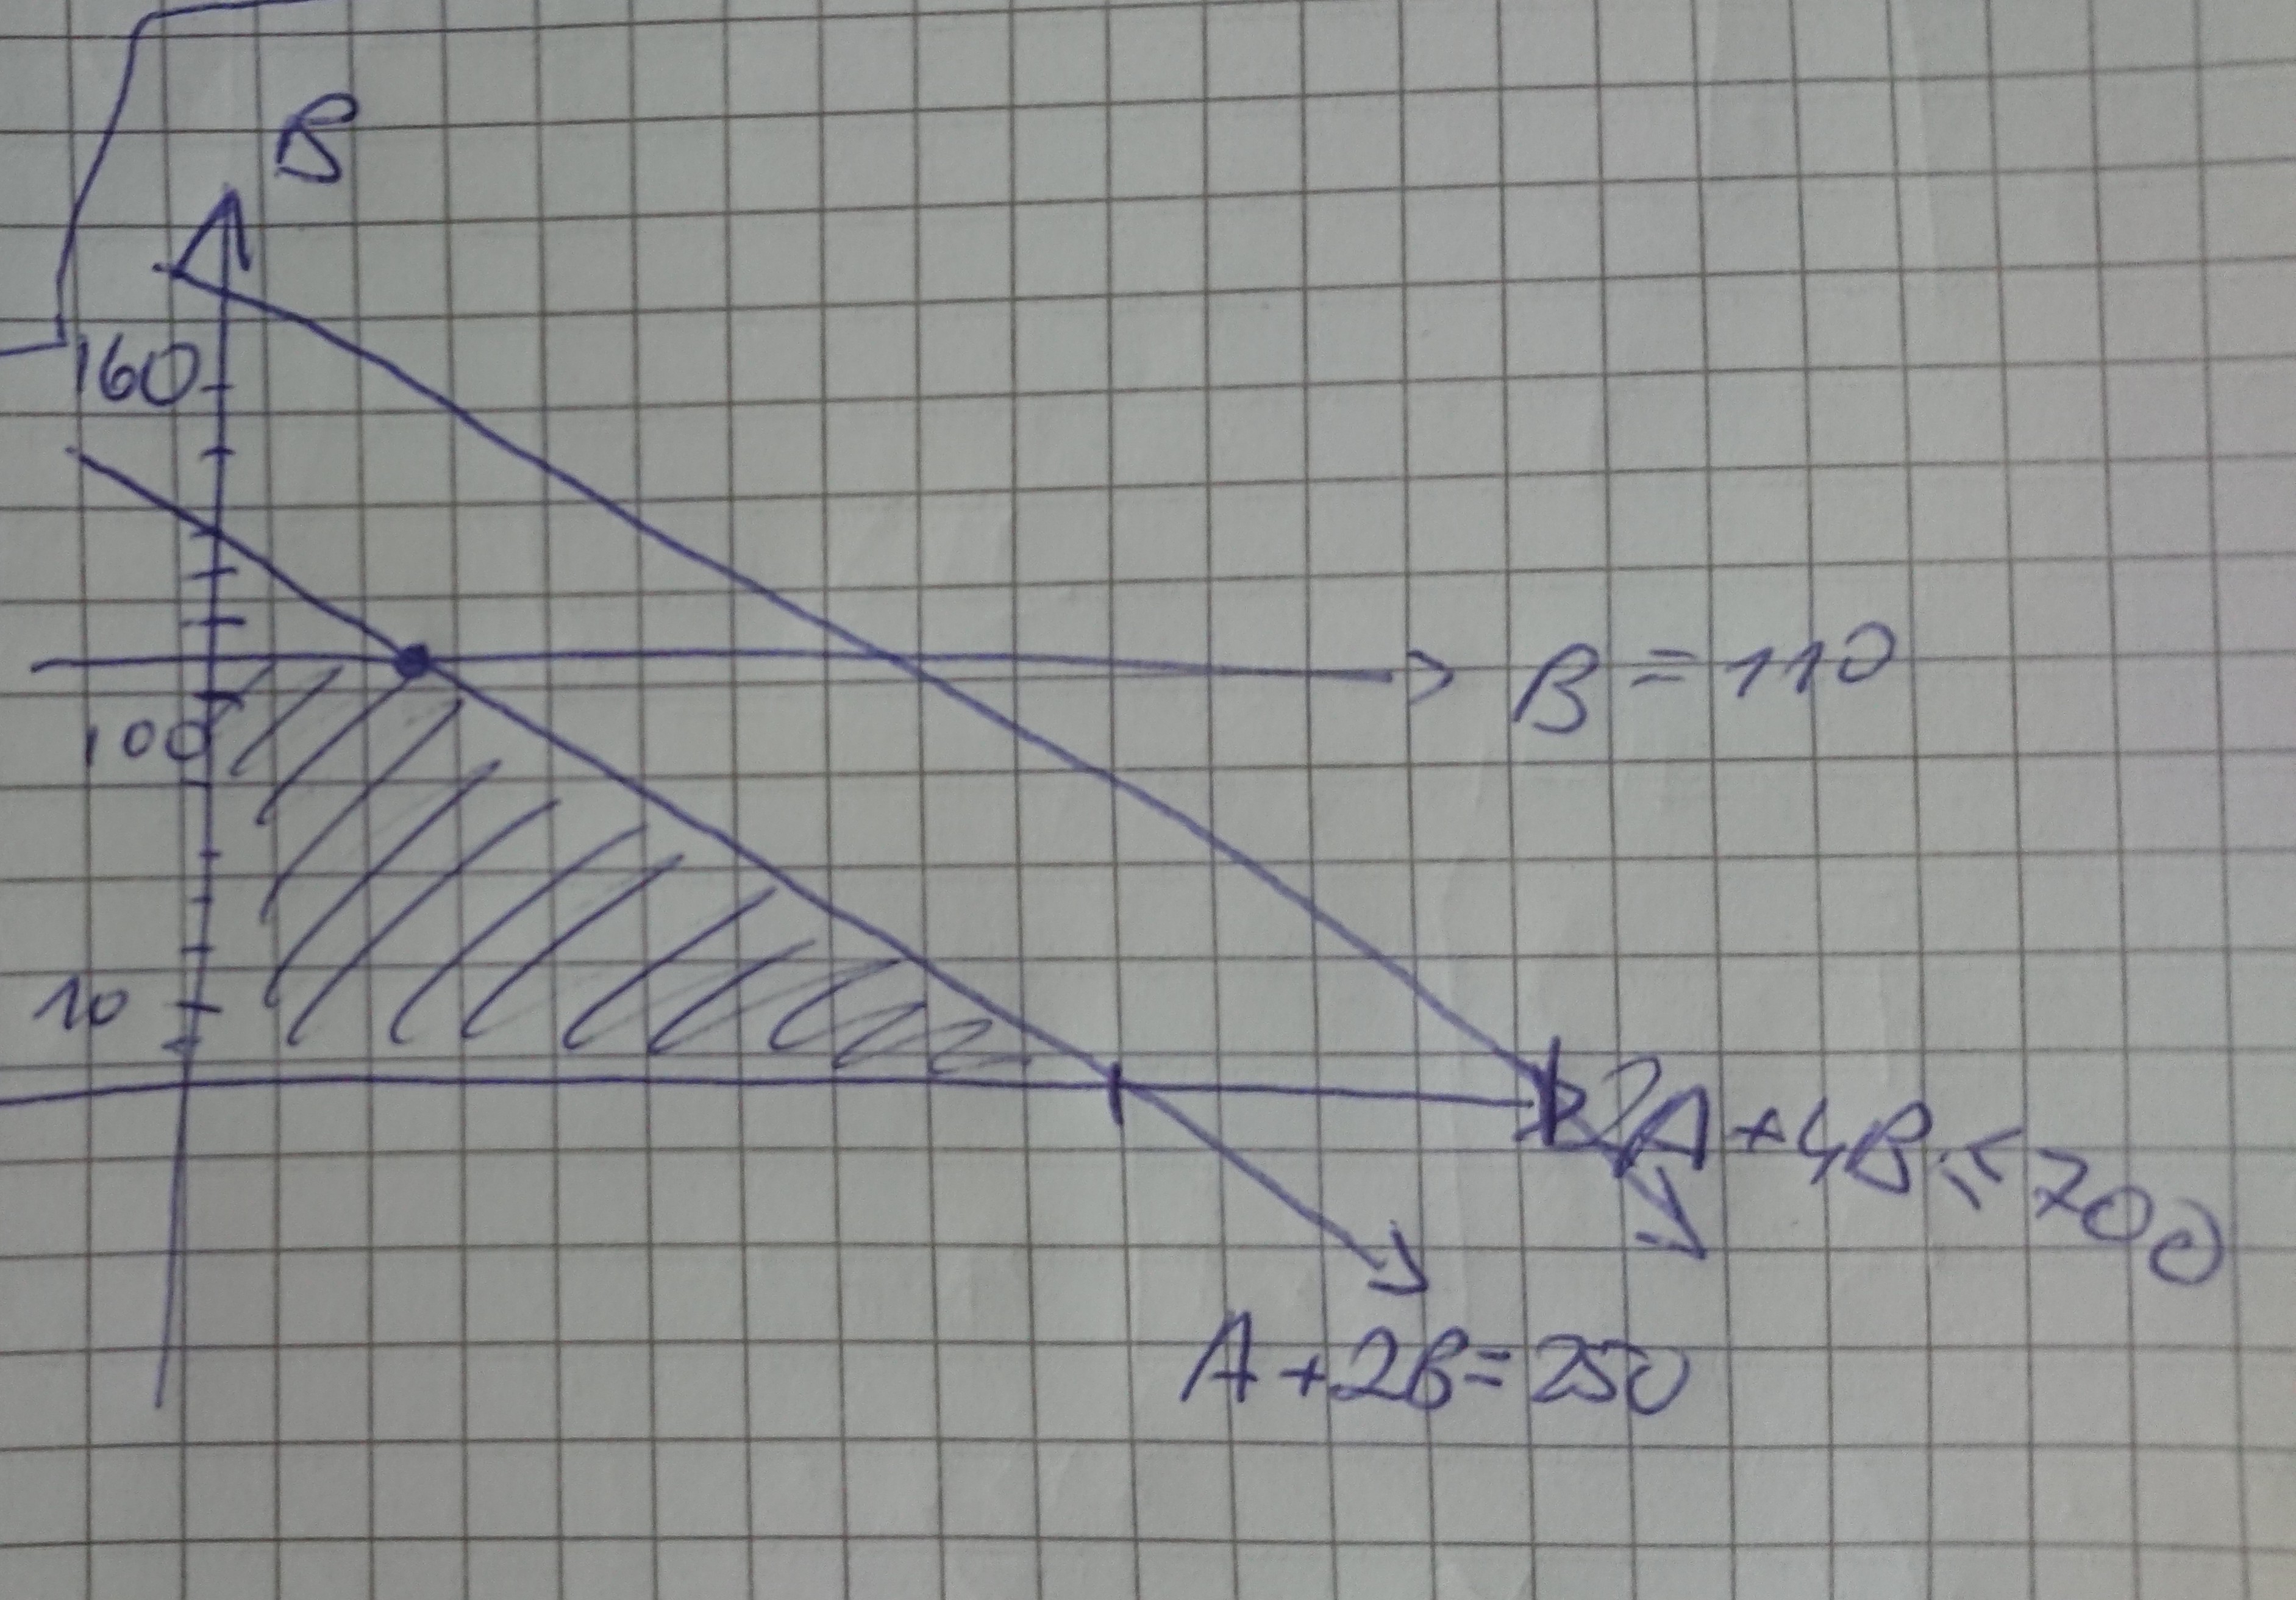 B
160
B = 110
100
10
2A + 4B ≤ 700
A + 2B = 250